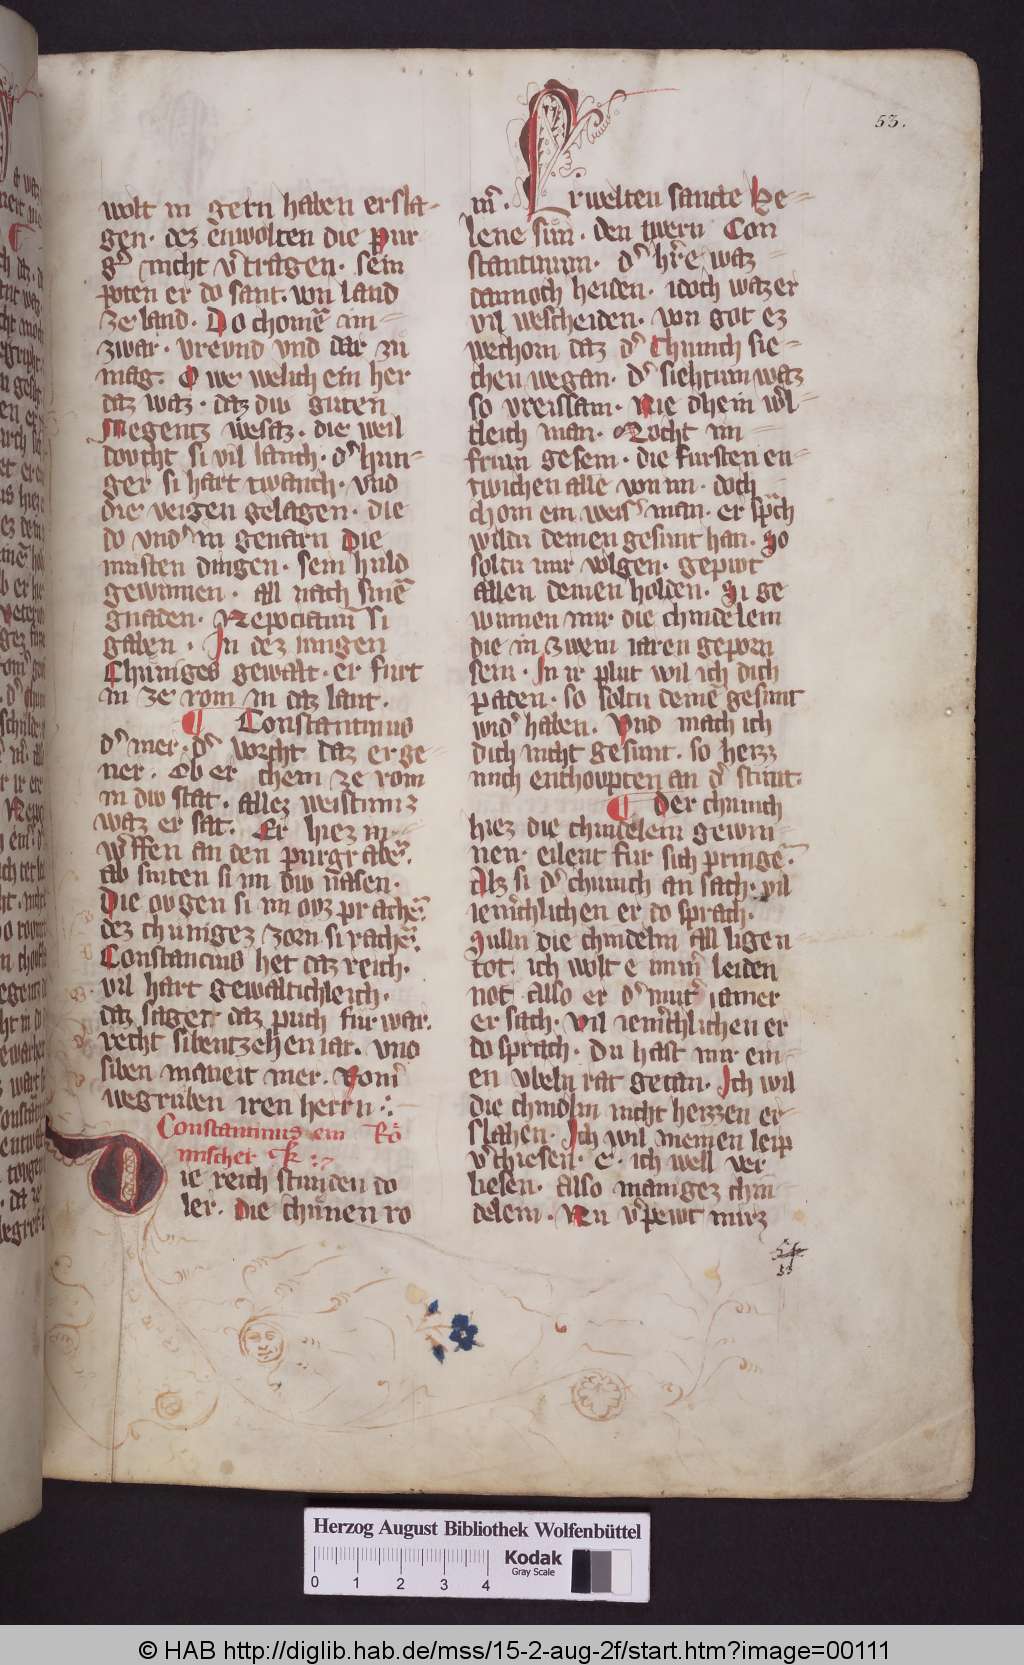 53.
wolt in gern haben ersla-
gen. dez enwolten die pur
gͤr nicht vͤtragen. sein
poten er do sant. von land
ze land. Do chomē im
zwar. vreund vnd dar zu
mag. O we welich ein her
daz waz. daz diw guten
Megentz wesaz. die weil
doucht si vil lanch. dͤ hun-
ger si hart twanch. vnd
die veigen gelagen. die
do vndͤ in genarn Die
musten dingen. sein huld
gewinnen. all nach sinē
gnaden. Nepocianū si
gaben. In dez iungen
Chuniges gewalt. er furt
in ze rom in daz lant.
¶ Constantinus
dͤ mer. dͤ vorcht daz er ge
ner. Ob er chem ze rom
in diw stat. allez weistumz
waz er sat. Er hiez in
wͤffen an den purgrabē.
ab sniten si im diw nasen.
Die ougen si im ouz prachē.
dez chunigez zorn si rachē.
Constancius het daz reich.
vil hart gewaltichleich.
daz saget daz puch fur war.
recht sibentzehen iar. vnd
siben maneit mer. Romͤ
wegruben iren herrn.
Constantinus ein Rö
mischer K.
Die reich stunden do
ler. Die chunen ro
mͤ. Erwelten sancte He-
lene sun. den twern Con
stantinum. dͤ hͤre waz
dannoch heiden. idoch waz er
vil wescheiden. von got ez
wechom daz dͤ chunich sie-
chen wegan. dͤ siechtum waz
so vreislam. Nie dhein wͤl
tleich man. Mocht im
frum gesein. die fursten en-
twichen alle von im. doch
chom ein weisͤ man. er sprͤch
wildu deinen gesunt han. So
soltu mir volgen. gepiwt
allen deinen holden. Si ge
winnen mir die chindelein
die in zwein iaren geporn
sein. In ir plut wil ich dich
paden. so soltu deinē gesunt
widͤ haben. Vnd mach ich
dich nicht gesunt. so heizz
mich enthoupten an dͤ stunt.
¶ Der chunich
hiez die chindelein gewin
nen. eilent fur sich pringē.
Alz si dͤ chunich an sach. vil
iemͤchlichen er do sprach.
Sulln die chindelin all ligen
tot. ich wolt e immͤ leiden
not. Also er dͤ mutͤ iamer
er sach. Vil iemͤchlichen er
do sprach. Du hast mir ein
en vbeln rat getan. Ich wil
die chindlin nicht heizzen er-
slahen. Ich wil meinen leip
vͤchiesen. e. ich well ver
liesen. Also manigez chin
delein. Nu vͤpewt mirz
54
53
Herzog August Bibliothek Wolfenbüttel
0 1 2 3 4
Kodak
Gray Scale
© HAB http://diglib.hab.de/mss/15-2-aug-2f/start.htm?image=00111